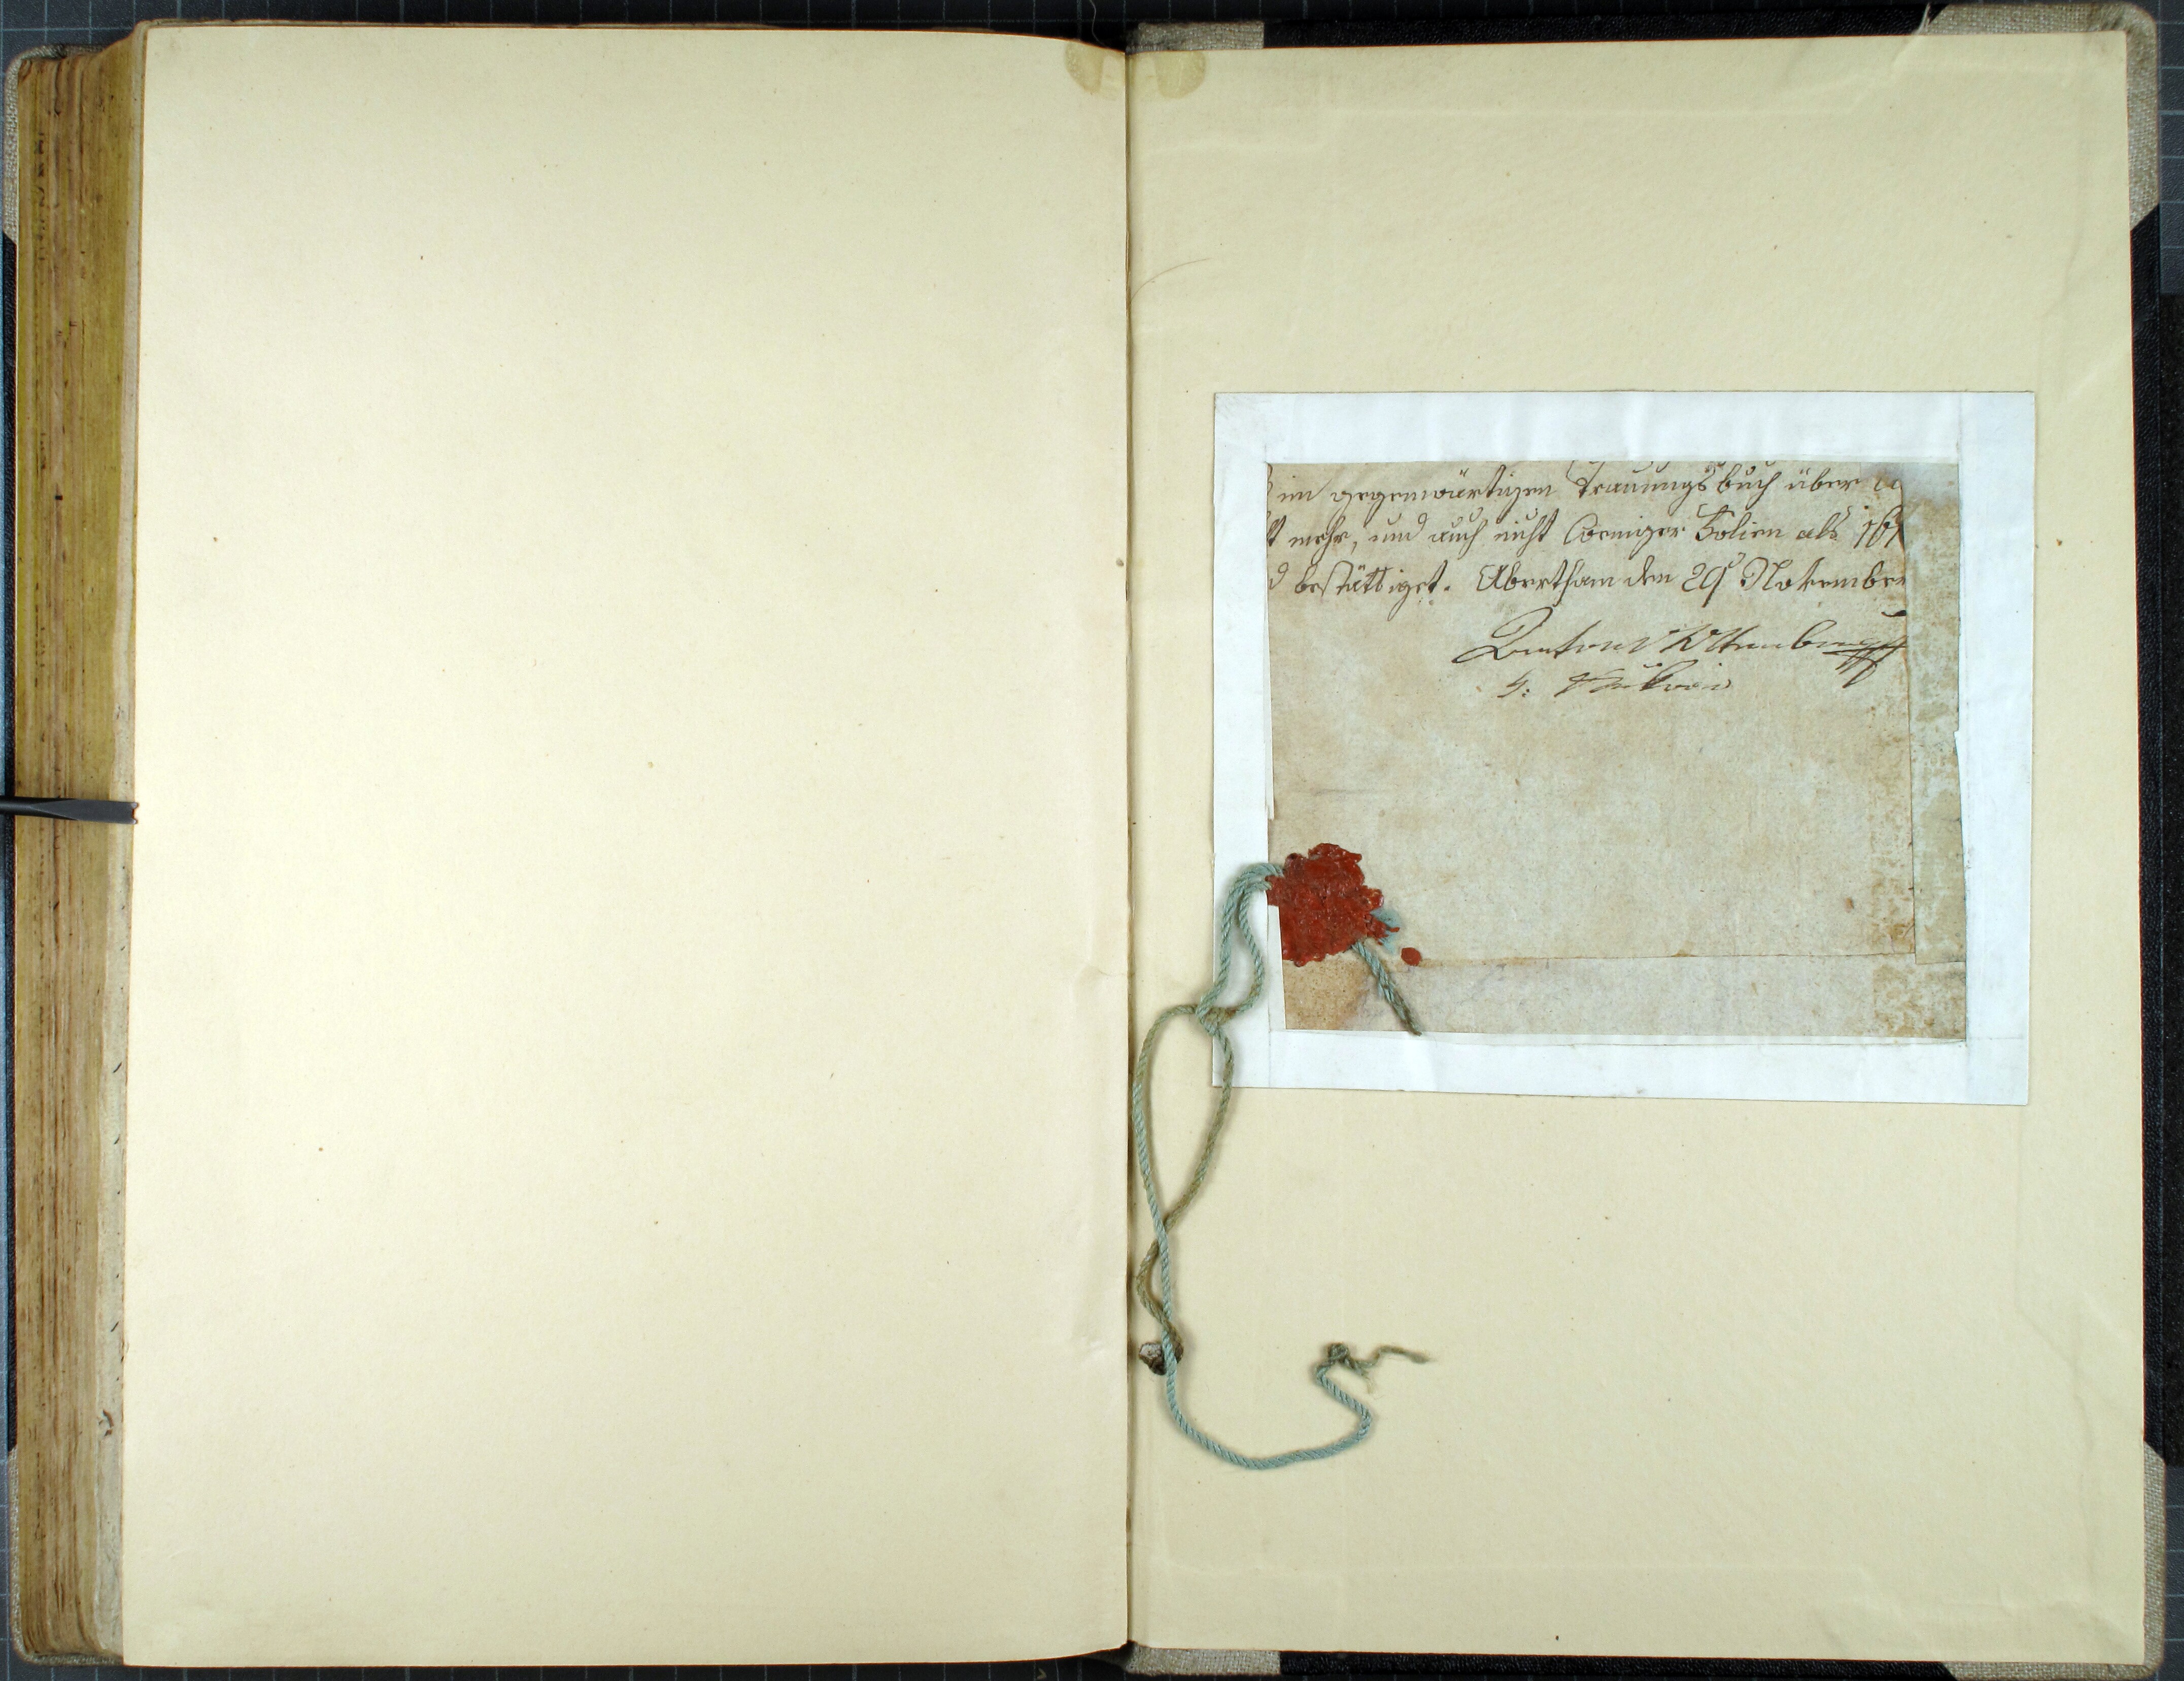 im gegenwärtigen Trauungsbuch über
mehr, und auch nicht weniger Folien als 161
bestättiget. Abertham den 29 November
Anton